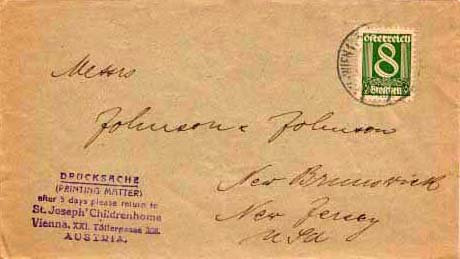 österreich
8
Groschen
WIEN
Messrs
Johnson & Johnson
New Brunswick
New Jersey
USA
DRUCKSACHE
(PRINTING MATTER)
after 5 days please return to
St. Joseph' Childrenhome
Vienna, XXI.
AUSTRIA.